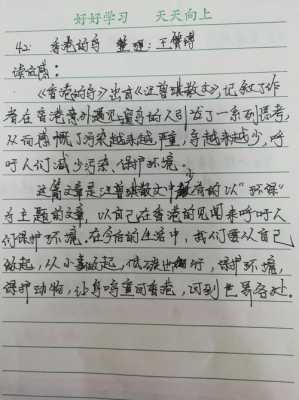 好好学习 天天向上
42 香港的鸟 整理:王
读后感:
《香港的鸟》出自《汪曾祺散文》,记叙了作
者在香港意外遇见遛鸟的人引发了一系列思考,
从而感慨了污染越来越严重,鸟越来越少,呼
吁人们减少污染,保护环境。
这篇文章是汪曾祺散文中少有的以“环保”
为主题的文章,以自己在香港的见闻来呼吁人
们保护环境。在今后的生活中,我们要从自己
做起,从小事做起,低碳出行,保护环境,
保护动物,让鸟鸣重回香港,回到世界各处。